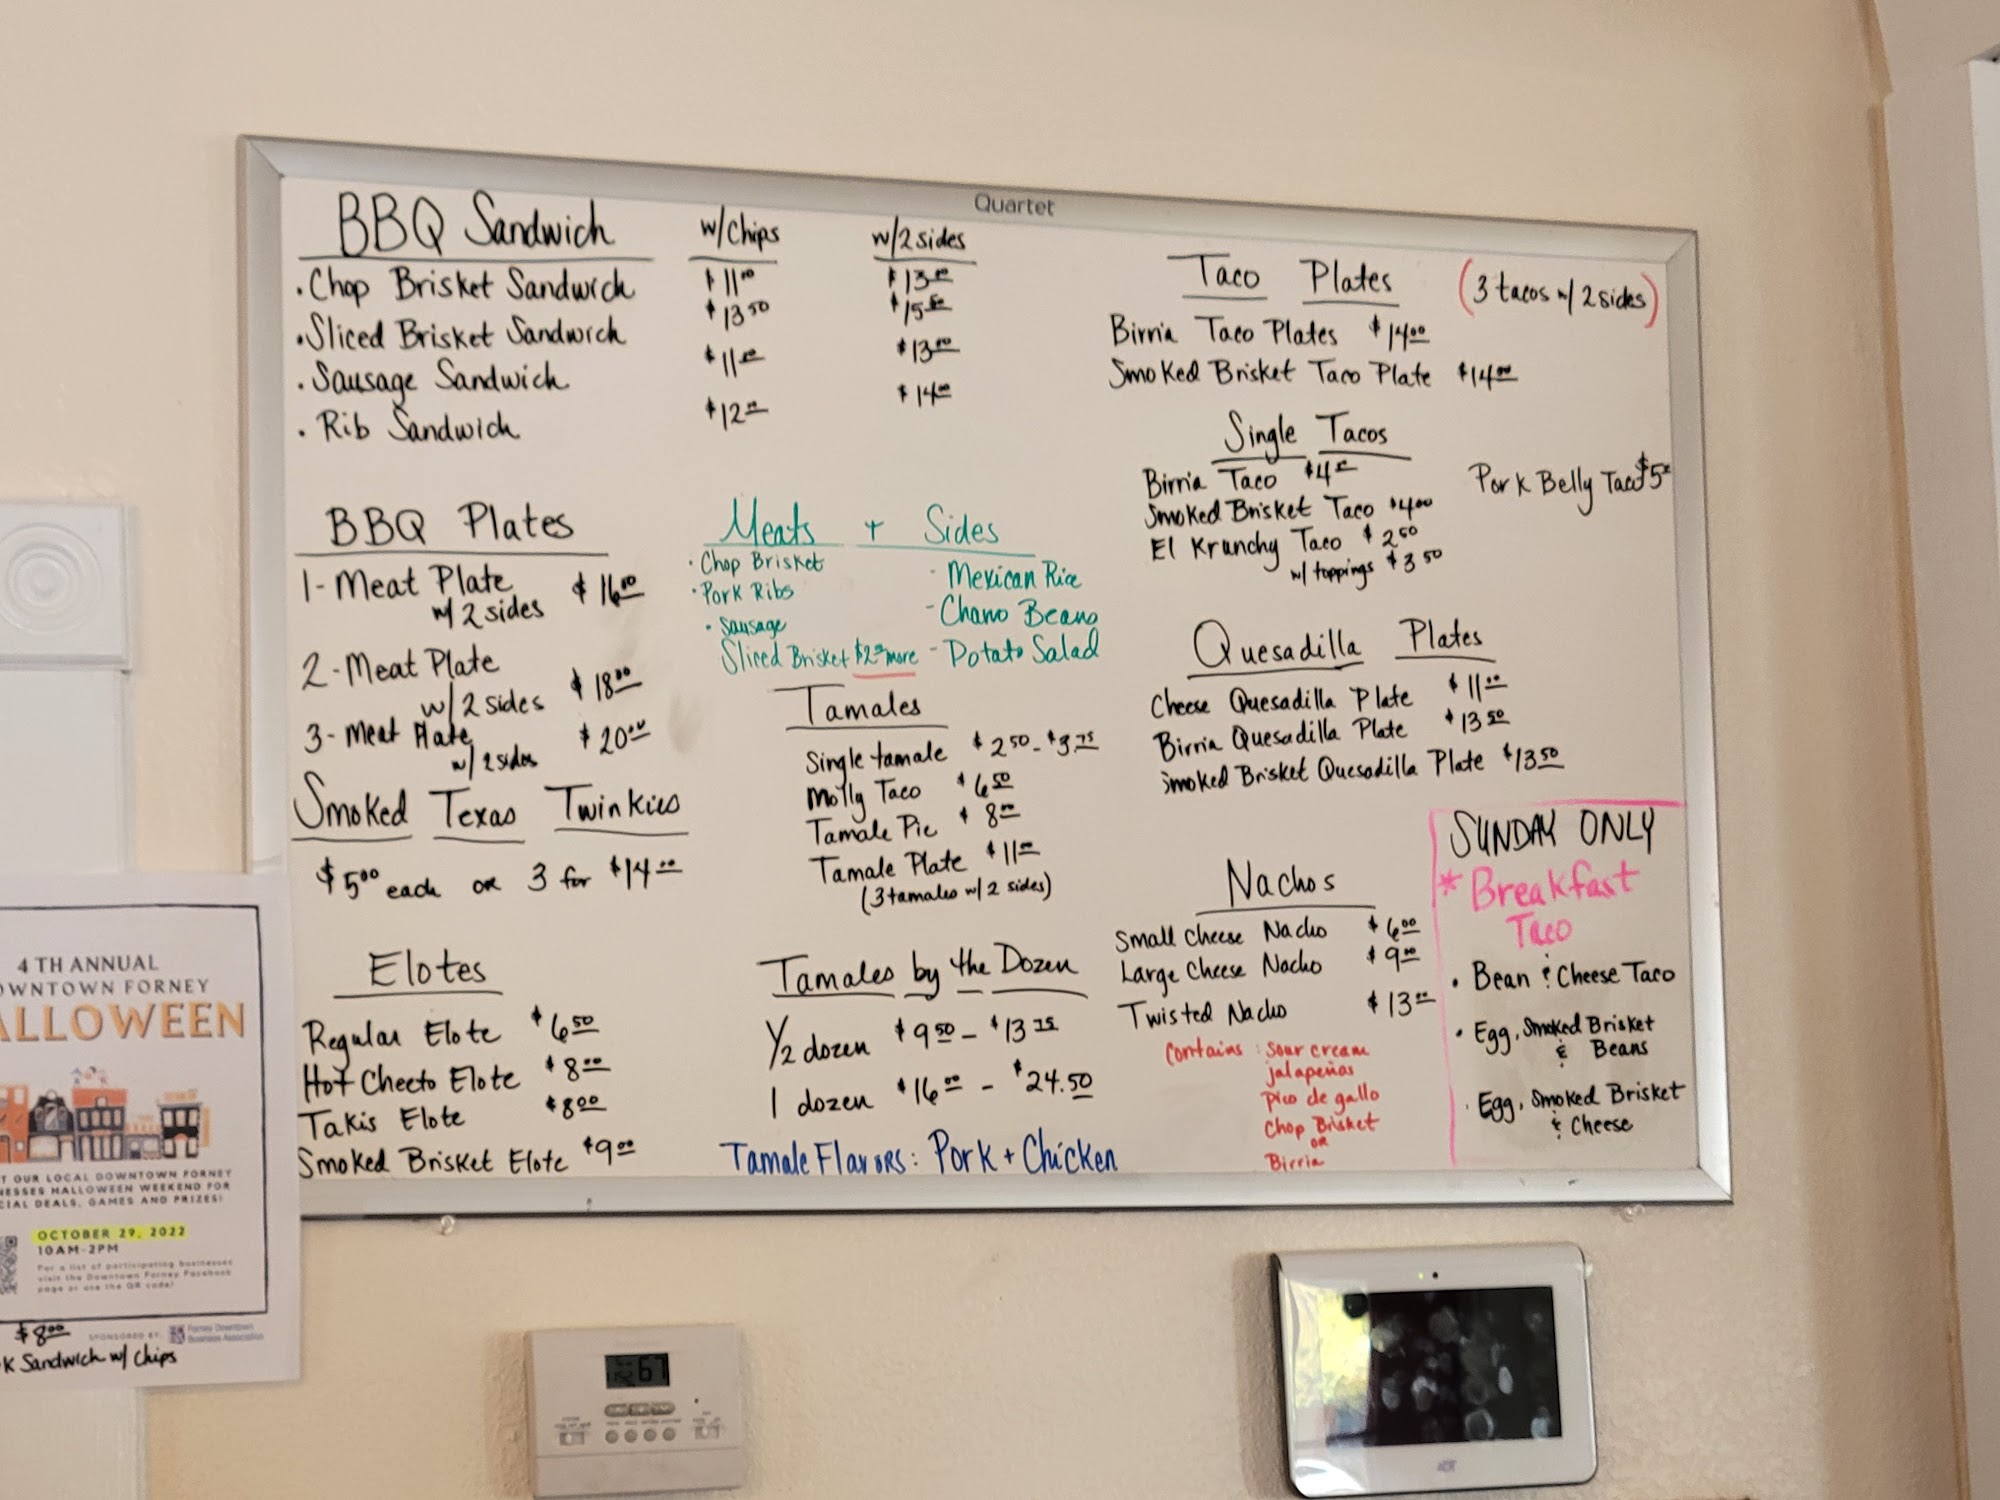 Quartet
BBQ Sandwich w/chips w/2 sides
• Chop Brisket Sandwich $11.00 $13.00
• Sliced Brisket Sandwich $13.50 $15.50
• Sausage Sandwich $11.00 $13.00
• Rib Sandwich $12.00 $14.00
BBQ Plates
1-Meat Plate $16.00
w/ 2 sides
2-Meat Plate
w/ 2 sides $18.00
3-Meat Plate $20.00
w/ 2 sides
Smoked Texas Twinkies
$5.00 each or 3 for $14.00
Elotes
Regular Elote $6.50
Hot Cheeto Elote $8.00
Takis Elote $8.00
Smoked Brisket Elote $9.00
Meats + Sides
• Chop Brisket - Mexican Rice
• Pork Ribs - Charro Beans
• Sausage
Sliced Brisket $2.00 more - Potato Salad
Tamales
Single tamale $2.50 - $3.75
Molly Taco $6.50
Tamale Pie $8.00
Tamale Plate $11.00
(3 tamales w/ 2 sides)
Tamales by the Dozen
1/2 dozen $9.50 - $13.75
1 dozen $16.00 - $24.50
Tamale Flavors: Pork + Chicken
Taco Plates (3 tacos w/ 2 sides)
Birria Taco Plates $14.00
Smoked Brisket Taco Plate $14.00
Single Tacos
Birria Taco $4.00
Smoked Brisket Taco $4.00
El Krunchy Taco $2.50
w/ toppings $3.50
Pork Belly Taco $5.00
Quesadilla Plates
Cheese Quesadilla Plate $11.00
Birria Quesadilla Plate $13.50
Smoked Brisket Quesadilla Plate $13.50
Nachos
Small Cheese Nacho $6.00
Large Cheese Nacho $9.00
Twisted Nacho $13.00
Contains: Sour cream
jalapeñas
pico de gallo
Chop Brisket
or
Birria
SUNDAY ONLY
* Breakfast
Taco
• Bean & Cheese Taco
• Egg, Smoked Brisket
& Beans
• Egg, Smoked Brisket
& Cheese
4TH ANNUAL
OWNTOWN FORNEY
ALLOWEEN
T OUR LOCAL DOWNTOWN FORNEY
NESSES HALLOWEEN WEEKEND FOR
CIAL DEALS, GAMES AND PRIZES!
OCTOBER 29, 2022
10AM-2PM
For a list of participating businesses
visit the Downtown Forney Facebook
page or use the QR code!
$8.00
SPONSORED BY: Forney Downtown
Business Association
K Sandwich w/ chips
67
ADT